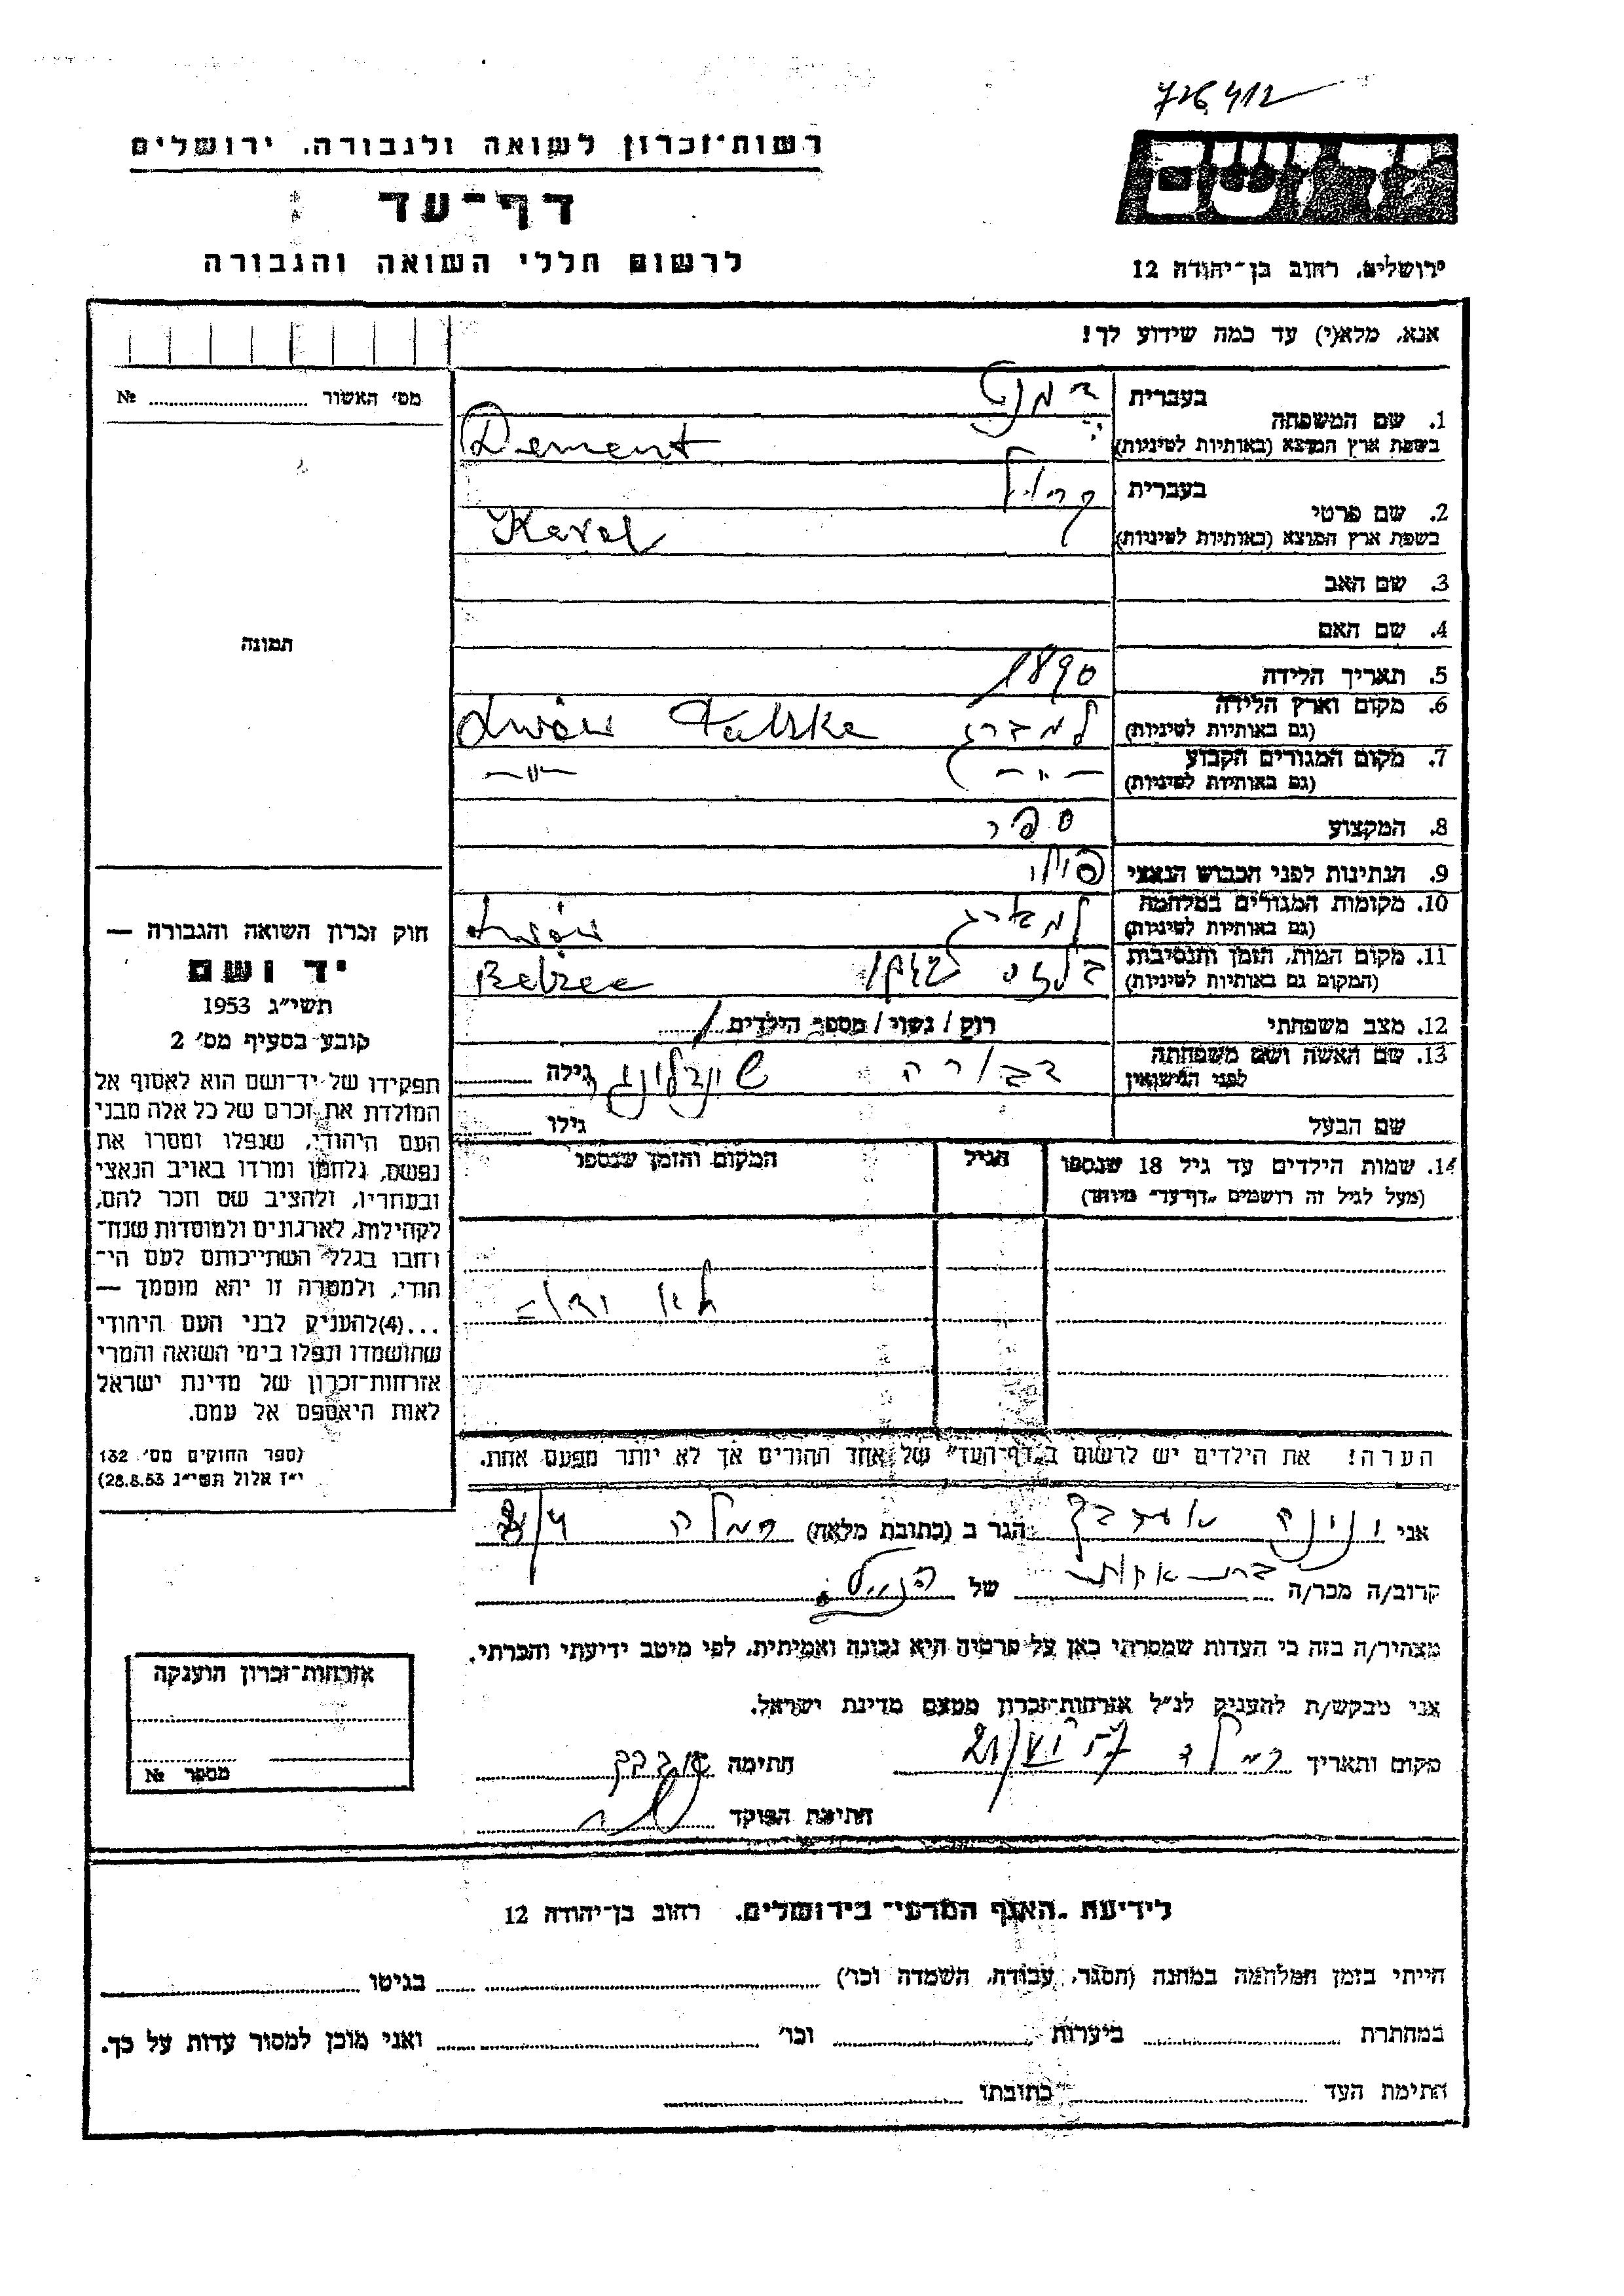 726412
יד ושם
רשות־זכרון לשואה ולגבורה, ירושלים
דף־עד
לרשום חללי השואה והגבורה
ירושלים, רחוב בן־יהודה 12
אנא, מלא(י) עד כמה שידוע לך!
מס׳ האשור № 
1. שם המשפחה
בעברית דמנט
בשפת ארץ המוצא (באותיות לטיניות) Dement
2. שם פרטי
בעברית קרול
בשפת ארץ המוצא (באותיות לטיניות) Karol
3. שם האב
4. שם האם
תמונה
5. תאריך הלידה 1890
6. מקום וארץ הלידה למברג Lwów
(גם באותיות לטיניות)
7. מקום המגורים הקבוע –"– –"–
(גם באותיות לטיניות)
8. המקצוע ספר
9. הנתינות לפני הכבוש הנאצי פולנ
10. מקומות המגורים במלחמה למברג Lwów
(גם באותיות לטיניות)
11. מקום המות, הזמן והנסיבות בלזץ Belzec
(המקום גם באותיות לטיניות)
12. מצב משפחתי רוק / נשוי / מספר הילדים
13. שם האשה ושם משפחתה דבורה גילה
לפני הנישואין
שם הבעל גילו
14. שמות הילדים עד גיל 18 שנספו הגיל המקום והזמן שנספו
(מעל לגיל זה רושמים "דף־עד" מיוחד)
לא
הערה! את הילדים יש לרשום ב"דף־העד" של אחד ההורים אך לא יותר מפעם אחת.
חוק זכרון השואה והגבורה —
יד ושם
תשי"ג 1953
קובע בסעיף מס׳ 2
תפקידו של יד־ושם הוא לאסוף אל
המולדת את זכרם של כל אלה מבני
העם היהודי, שנפלו ומסרו את
נפשם, נלחמו ומרדו באויב הנאצי
ובעוזריו, ולהציב שם וזכר להם,
לקהילות, לארגונים ולמוסדות שנח־
רחבו בגלל השתייכותם לעם הי־
הודי, ולמטרה זו יהא מוסמך —
...(4)להעניק לבני העם היהודי
שהושמדו ונפלו בימי השואה והמרי
אזרחות־זכרון של מדינת ישראל
לאות היאספם אל עמם.
(ספר החוקים מס׳ 132
י"ז אלול תשי"ג 28.8.53)
אני הגר ב (כתובת מלאה) רמלה
קרוב/ה מכר/ה בת אחות של הנ"ל
מצהיר/ה בזה כי העדות שמסרתי כאן על פרטיה היא נכונה ואמיתית, לפי מיטב ידיעתי והכרתי.
אני מבקש/ת להעניק לנ"ל אזרחות־זכרון מטעם מדינת ישראל.
מקום ותאריך רמלה 21/VI 57 חתימה
חתימת הפוקד
אזרחות־זכרון הוענקה
מספר №
לידיעת "האגף המדעי" בירושלים, רחוב בן־יהודה 12
הייתי בזמן המלחמה במחנה (הסגר, עבודה, השמדה וכו׳) בגיטו
במחתרת ביערות וכו׳ ואני מוכן למסור עדות על כך.
חתימת העד כתובתו